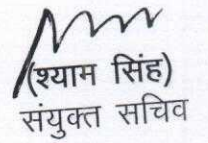 (श्याम सिंह)
संयुक्त सचिव